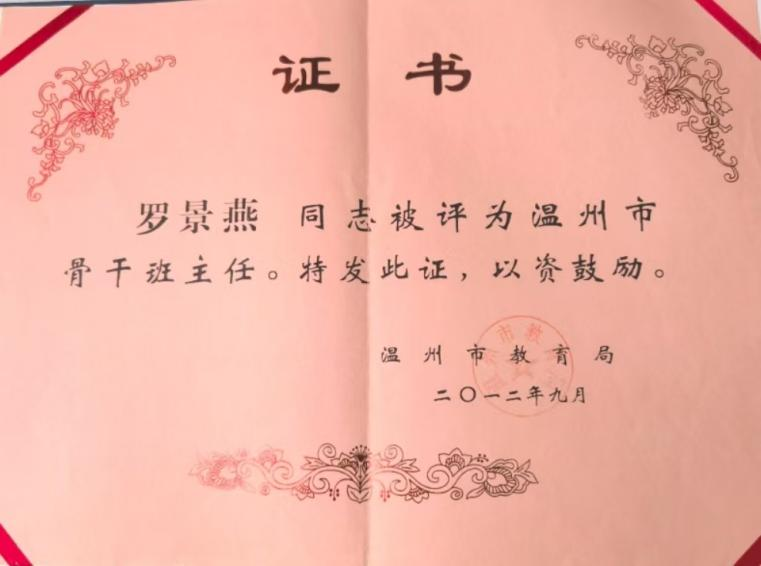 证书
罗景燕 同志被评为温州市
骨干班主任。特发此证，以资鼓励。
温州市教育局
二〇一二年九月
市教